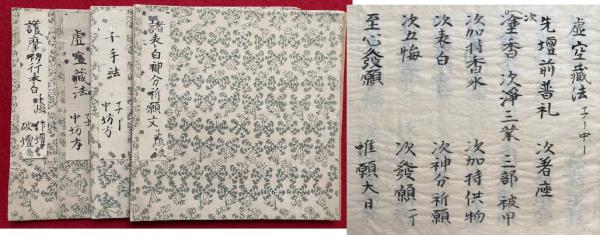 諸表白神分祈願文
千手法 子ー
中坊方
虚空藏法 子ー
中坊方
護摩初行表白
作壇
破壇
虚空藏法 子ー中ー
先壇前普礼 次著座
次塗香 次淨三業 三部 被甲
次加持香水 次加持供物
次表白 次神分祈願
次五悔 次發願
至心發願 唯願大日